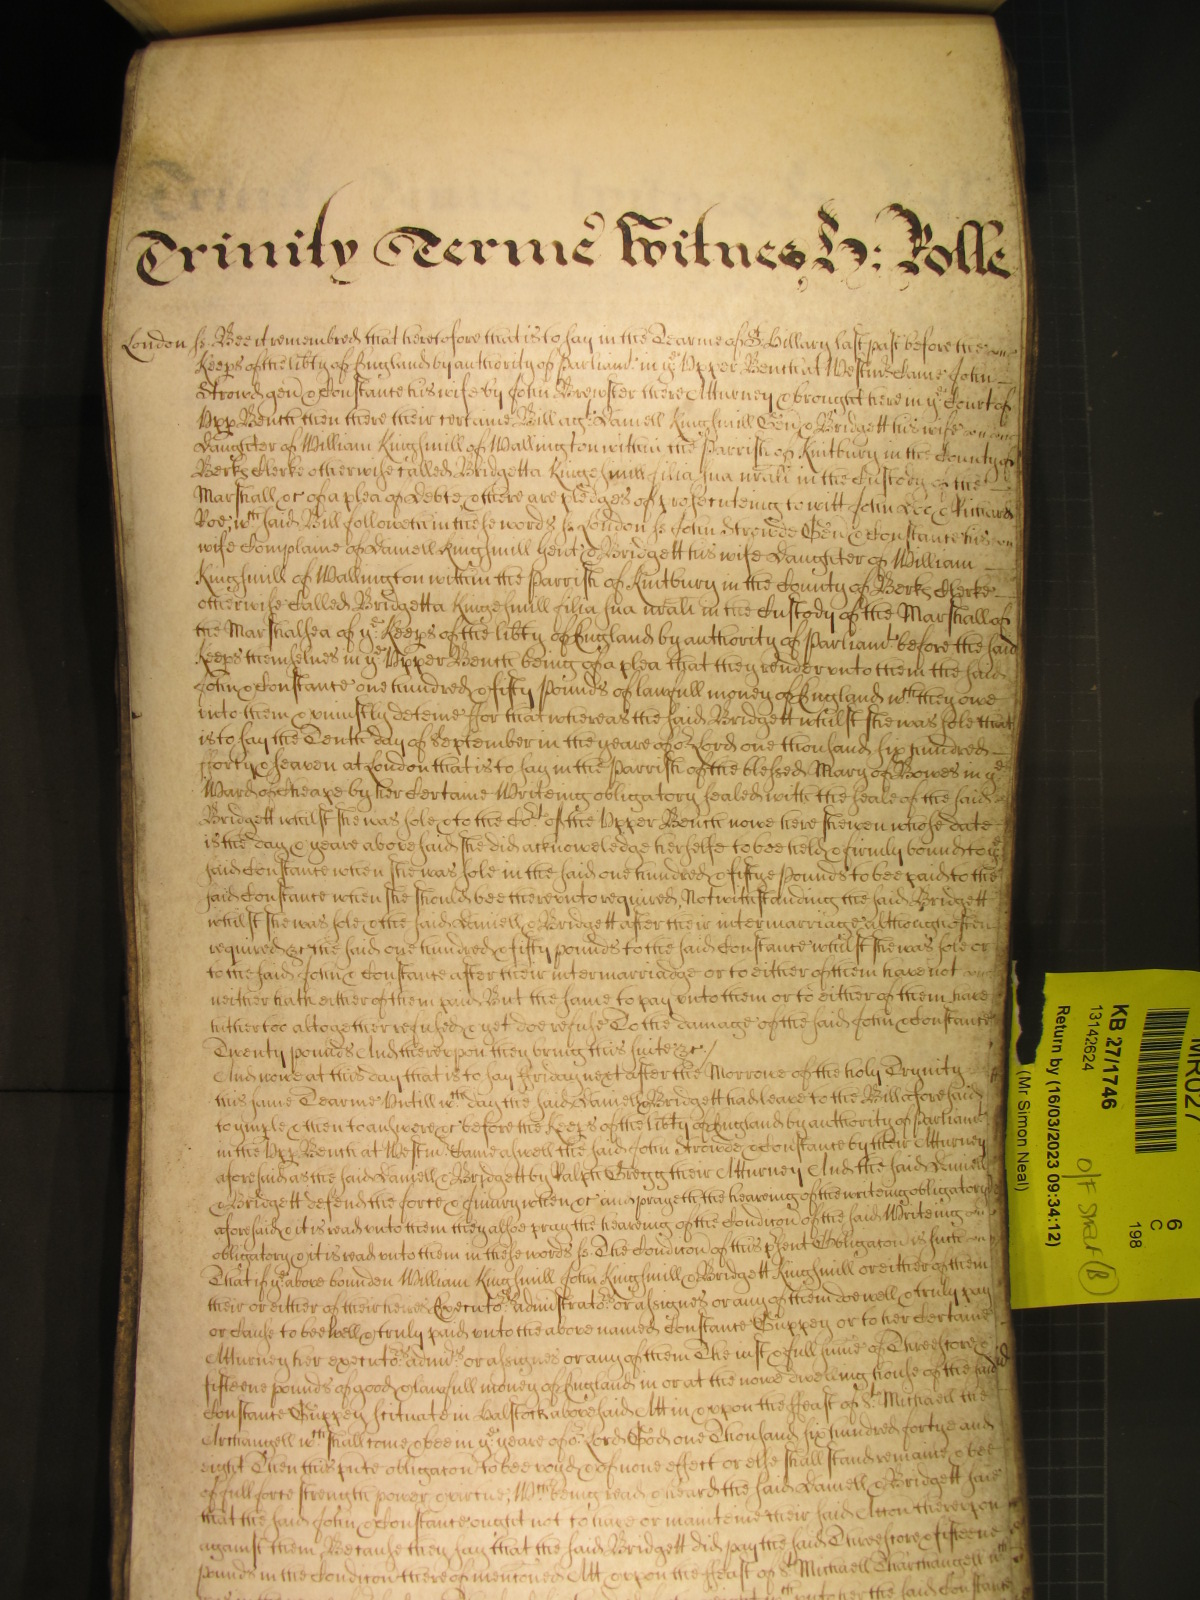 Trinity Terme Witnes H: Rolle
London ss Bee it remembred that heretofore that is to say in the Tearme of St Hillary last past before the
Keeps of the libty of England by authority of Parliamt in ye Upper Bench at Westmr Came John
Strowd gen & Constance his wife by John Brewster there Atturney & brought here in ye Court of
Upp Bench then there their certaine Bill agt Daniell Kinghmill Gen & Bridgett his wife
Daughter of William Kinghmill of Wallington within the Parrish of Kintbury in the County of
Berks Clerke otherwise called Bridgetta Kingesmill filia sua nrali in the Custody of the
Marshall &c of a plea of debte & there are pledges of prosecuteing to witt John Doo & Richard
Roe wch said Bill followeth in these words ss London ss John Strowde Gen & Constance his
wife Complaine of Daniell Kinghmill gent & Bridgett his wife Daughter of William
Kinghmill of Wallington within the Parrish of Kintbury in the County of Berks Clerke
otherwise Called Bridgetta Kingesmill filia sua nrali in the Custody of the Marshall of
the Marshalsea of ye Keeps of the libty of England by authority of Parliamt before the said
Keeps themselves in ye Upper Bench being of a plea that they render unto them the said
John & Constance one hundred & fifty pounds of lawfull money of England wch they owe
unto them & uniustly deteine ffor that whereas the said Bridgett whilst she was sole that
is to say the Tenth day of September in the yeare of or Lord one thousand six hundred
fforty & seaven at London that is to say in the Parrish of the blessed Mary of Bowes in ye
Ward of Cheape by her Certaine Writeing obligatory sealed with the seale of the said
Bridgett whilst she was sole & to the Cot of the Upper Bench nowe here shewen whose date
is the day & yeare abovesaid she did acknoweledge herselfe to bee held & firmly bound to ye
said Constance when she was sole in the said one hundred & fiftye Pounds to bee paid to the
said Constance when she should bee thereunto required Notwithstanding the said Bridgett
whilst she was sole & the said Daniell & Bridgett after their intermarriage although often
required &c the said one hundred & fifty pounds to the said Constance whilst she was sole or
to the said John & Constance after their intermarriadge or to either of them have not
neither hath either of them paid But the same to pay unto them or to either of them have
hitherto altogether refused & yet doe refuse To the damage of the said John & Constance
Twenty pounds And thereupon they bring this suite &c
And nowe at this day that is to say Friday next after the Morrowe of the holy Trynity
this same Tearme Untill wch day the said Daniell & Bridgett had leave to the Bill aforesaid
to imple & then to answere &c before the Keeps of the libty of England by authority of Parliamt
in the Upp Bench at Westm Came aswell the said John Strowde & Constance by their Atturney
aforesaid as the said Daniell & Bridgett by Ralph Gregg their Atturney And the said Daniell
& Bridgett defend the force & iniury when &c and prayeth the heareing of the writeing obligatory
aforesaid & it is read unto them they alsoe pray the heareing of the Condicon of the said Writeing
obligatory & it is read unto them in these words ss The Condicon of this psent Obligacon is such
That if ye above bounden William Kinghmill John Kinghmill & Bridgett Kinghmill or either of them
their or either of their heires Executors Administrators or assignes or any of them doe well & truly pay
or Cause to bee well & truly paid unto the above named Constance Guppey or to her Certaine
Atturney her executors admrs or assignes or any of them The iust & full sume of Threescore &
fifteene pounds of good & lawfull money of England in or at the nowe dwelling house of the said
Constance Guppey scituate in Calstock abovesaid Att in & upon the ffeast of St Michaell the
Archangell wch shall come & bee in ye yeare of or Lord God one Thousand six hundred fortye and
eight Then this pnte obligacon to bee voyd & of none effect or else shall stand remaine & bee
of full force strength power & vertue, Wch being read & heard the said Daniell & Bridgett saie
that the said John & Constance ought not to have or mainteine their said Accon thereupon
against them Because they say that the said Bridgett did pay the said Threescore & fifteene
pounds in the Condicon thereof mencioned Att & upon the ffeast of St Michaell Tharchangell wch
unto her the said Constance
MR027
6
C
198
KB 27/1746
13142624
O/F Shelf (B)
Return by (16/03/2023 09:34:12)
(Mr Simon Neal)